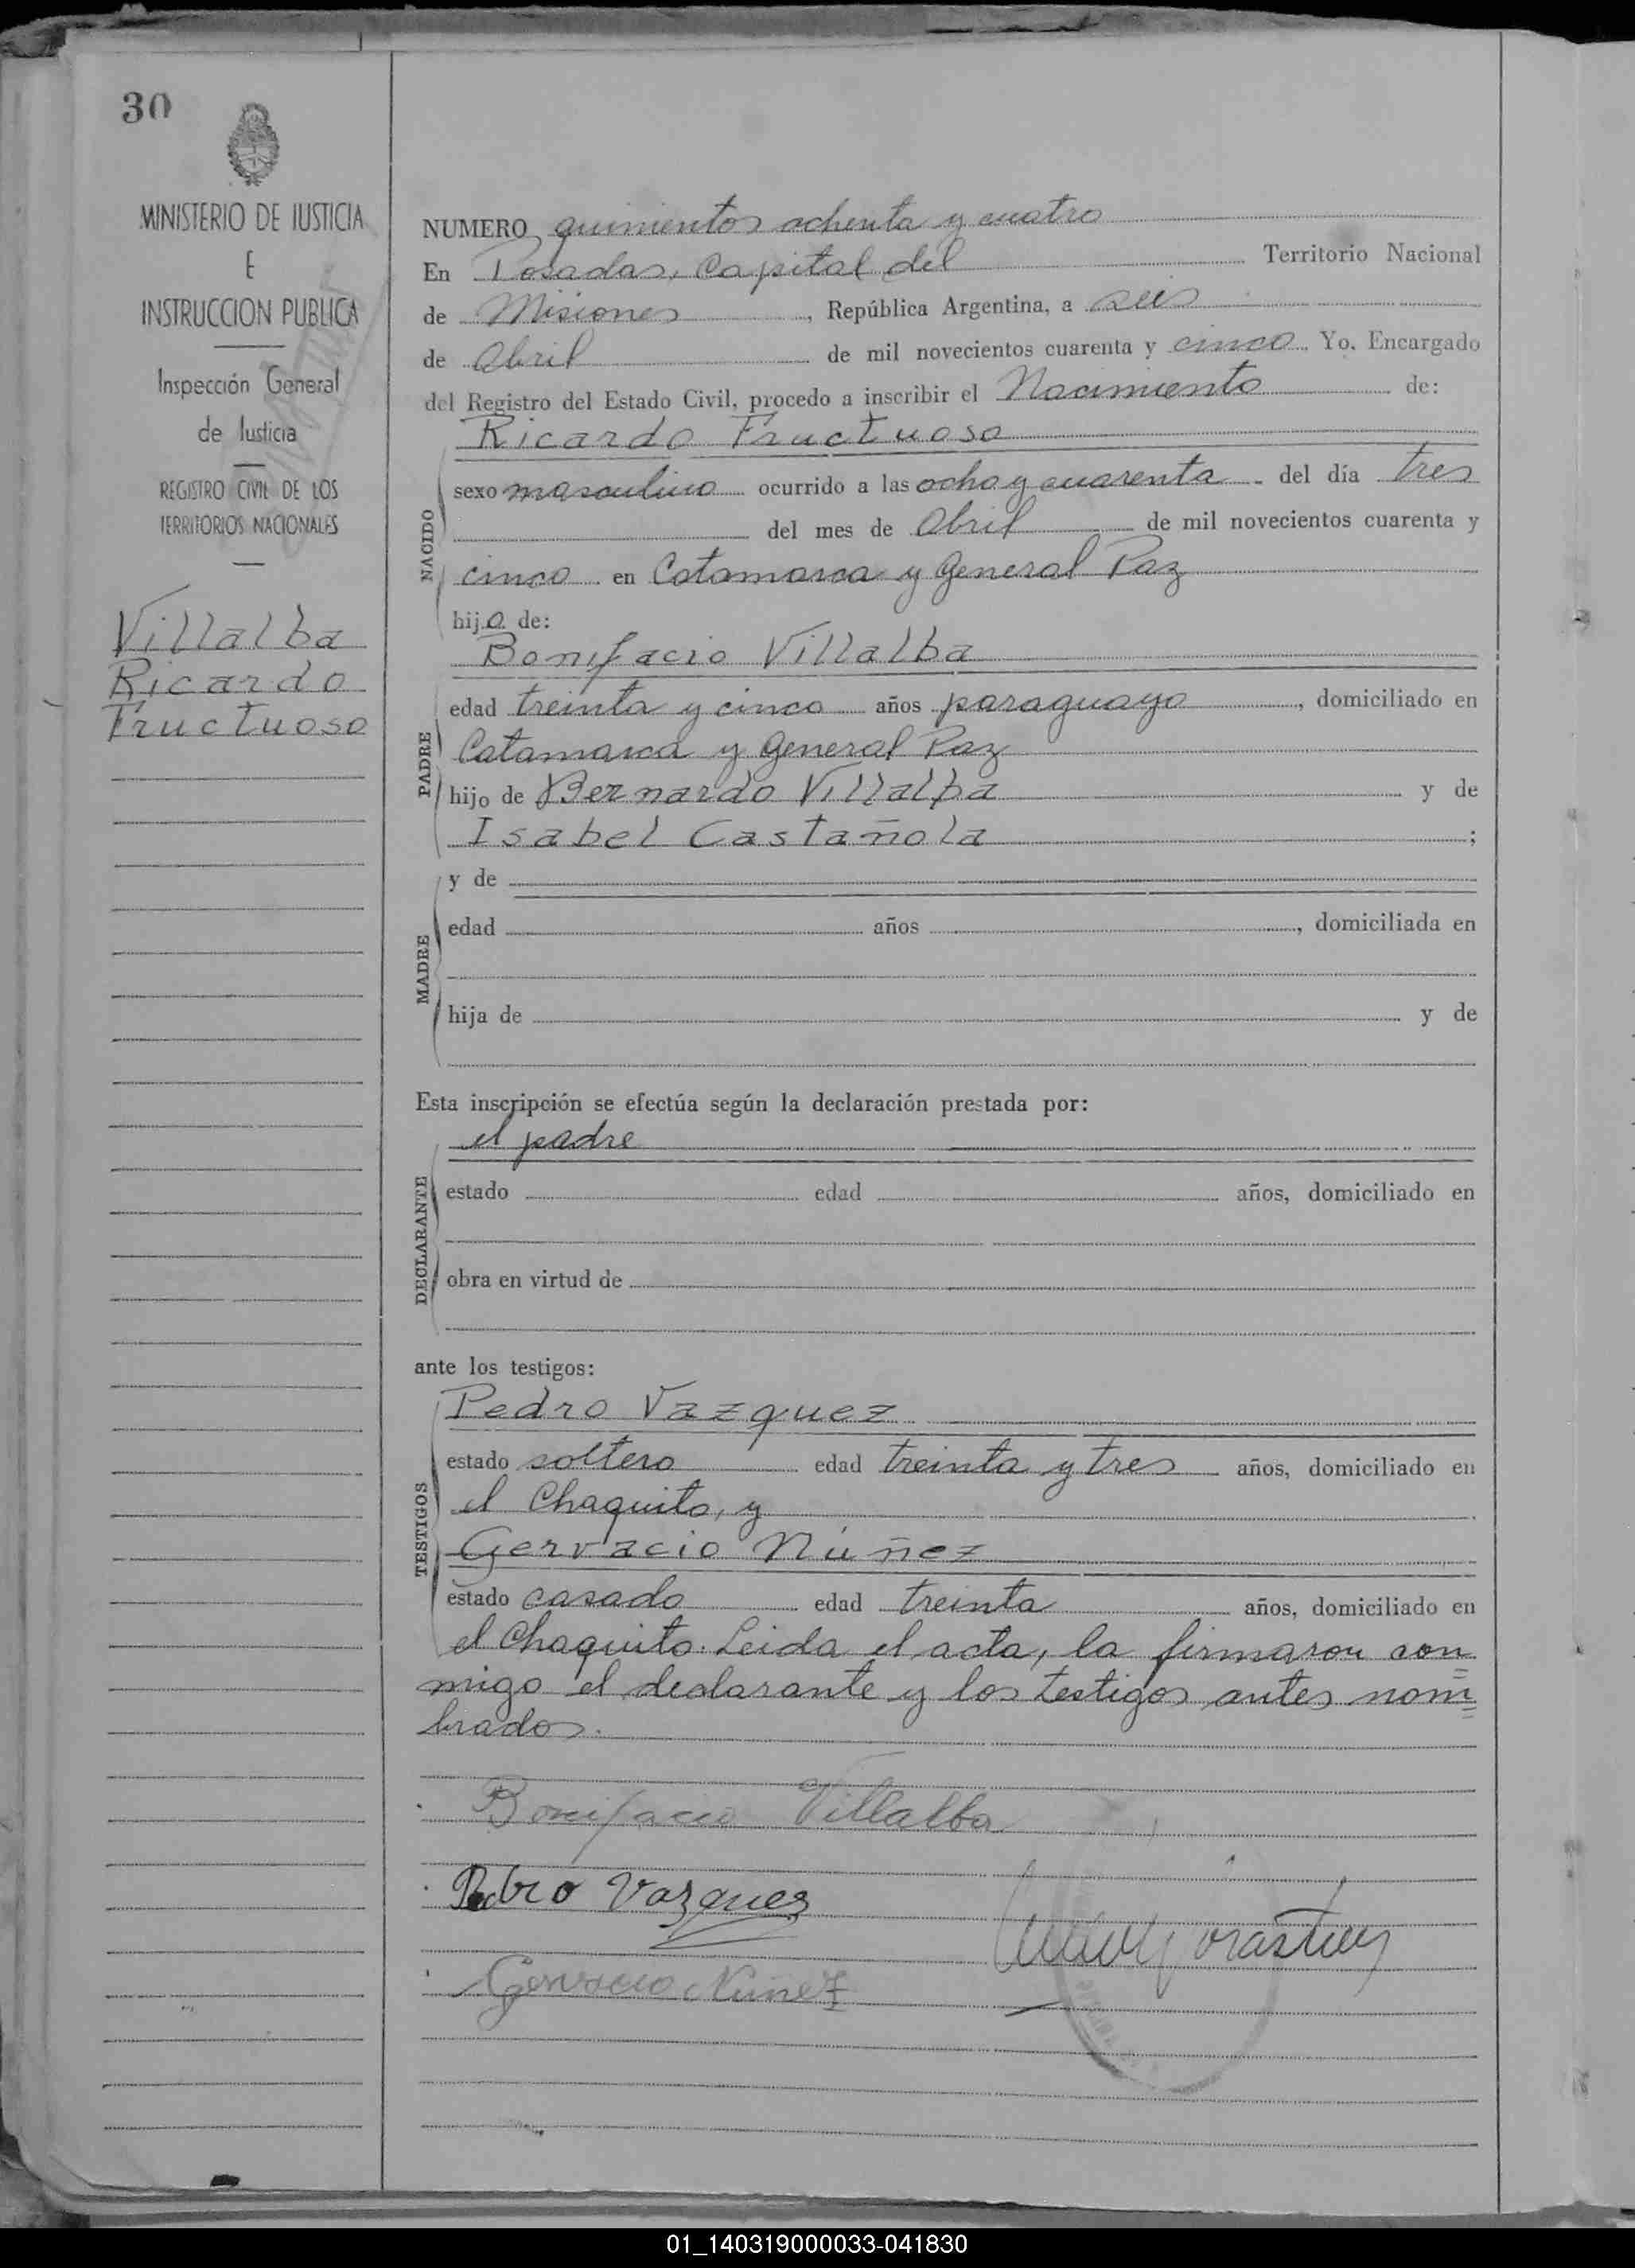 30
MINISTERIO DE JUSTICIA
E
INSTRUCCION PUBLICA
Inspección General
de Justicia
REGISTRO CIVIL DE LOS
TERRITORIOS NACIONALES
Villalba
Ricardo
Fructuoso
NUMERO quinientos ochenta y cuatro
En Posadas, Capital del Territorio Nacional
de Misiones, República Argentina, a seis
de Abril de mil novecientos cuarenta y cinco Yo, Encargado
del Registro del Estado Civil, procedo a inscribir el Nacimiento de:
Ricardo Fructuoso
NACIDO
sexo masculino ocurrido a las ocho y cuarenta del día tres
del mes de Abril de mil novecientos cuarenta y
cinco en Catamarca y General Paz
hijo de:
Bonifacio Villalba
PADRE
edad treinta y cinco años paraguayo, domiciliado en
Catamarca y General Paz
hijo de Bernardo Villalba y de
Isabel Castañola;
MADRE
y de
edad años , domiciliada en
hija de y de
Esta inscripción se efectúa según la declaración prestada por:
el padre
DECLARANTE
estado edad años, domiciliado en
obra en virtud de
ante los testigos:
Pedro Vazquez
TESTIGOS
estado soltero edad treinta y tres años, domiciliado en
el Chaquito, y
Gervacio Núñez
estado casado edad treinta años, domiciliado en
el Chaquito. Leida el acta, la firmaron con=
migo el declarante y los testigos antes nom=
brados.
Bonifacio Villalba
Pedro Vazquez
Gervacio Nuñez
01_140319000033-041830